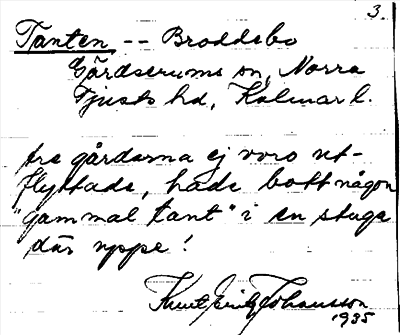 3.
Tanten -- Broddebo
Gärdserums sn, Norra
Tjusts hd, Kalmar l.
tre gårdarna ej voro ut-
flyttade, hade bott någon
"gammal tant" i en stuga
där uppe!
Knut Eric Johansson
1935